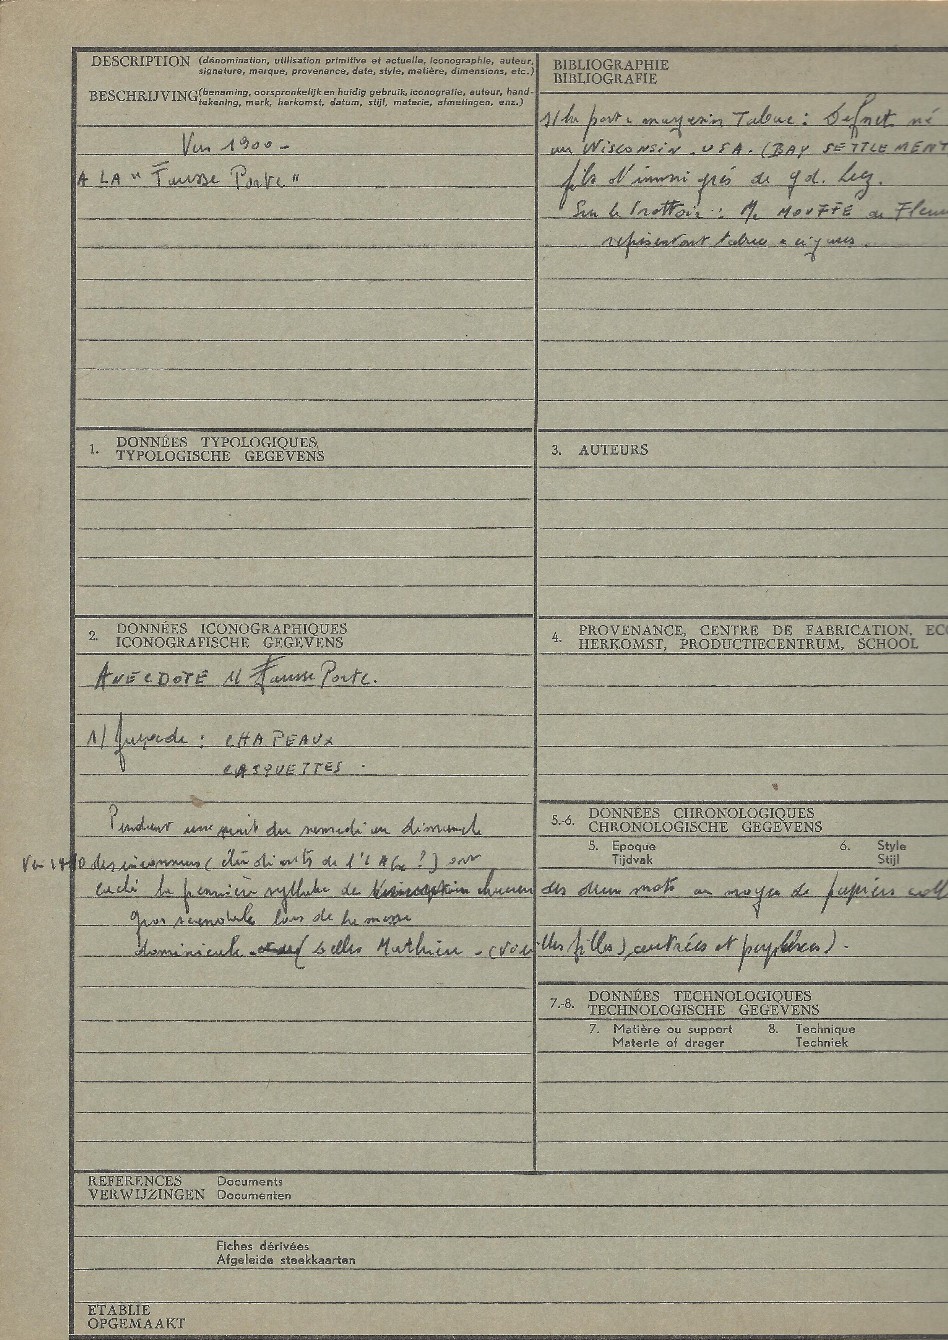 DESCRIPTION (dénomination, utilisation primitive et actuelle, iconographie, auteur,
signature, marque, provenance, date, style, matière, dimensions, etc.)
BESCHRIJVING (benaming, oorspronkelijk en huidig gebruik, iconografie, auteur, hand-
tekening, merk, herkomst, datum, stijl, materie, afmetingen, enz.)
Vers 1900 -
A LA "Fausse Porte"
BIBLIOGRAPHIE
BIBLIOGRAFIE
s/la porte magasin Tabac : Defnet né
au WISCONSIN. USA. (BAY SETTLEMENT
fils d'immigrés de gd. Leez.
Sur le trottoir : Mr MOUFFE de
représentant tabac cigares.
1. DONNÉES TYPOLOGIQUES
TYPOLOGISCHE GEGEVENS
3. AUTEURS
2. DONNÉES ICONOGRAPHIQUES
ICONOGRAFISCHE GEGEVENS
ANECDOTE s/ Fausse Porte.
s/ façade : CHAPEAUX
CASQUETTES.
Pendant une nuit du samedi au dimanche
des inconnus (étudiants de l'I Ag. ?) ont
caché la première syllabe de chacun des deux mots au moyen de papiers
gros scandale lors de la messe
dominicale (Delles Mathieu - (vieilles filles), outrées et perplexes).
4. PROVENANCE, CENTRE DE FABRICATION,
HERKOMST, PRODUCTIECENTRUM, SCHOOL
5.-6. DONNÉES CHRONOLOGIQUES
CHRONOLOGISCHE GEGEVENS
5. Epoque 6. Style
Tijdvak Stijl
7.-8. DONNÉES TECHNOLOGIQUES
TECHNOLOGISCHE GEGEVENS
7. Matière ou support 8. Technique
Materie of drager Techniek
REFERENCES Documents
VERWIJZINGEN Documenten
Fiches dérivées
Afgeleide steekkaarten
ETABLIE
OPGEMAAKT